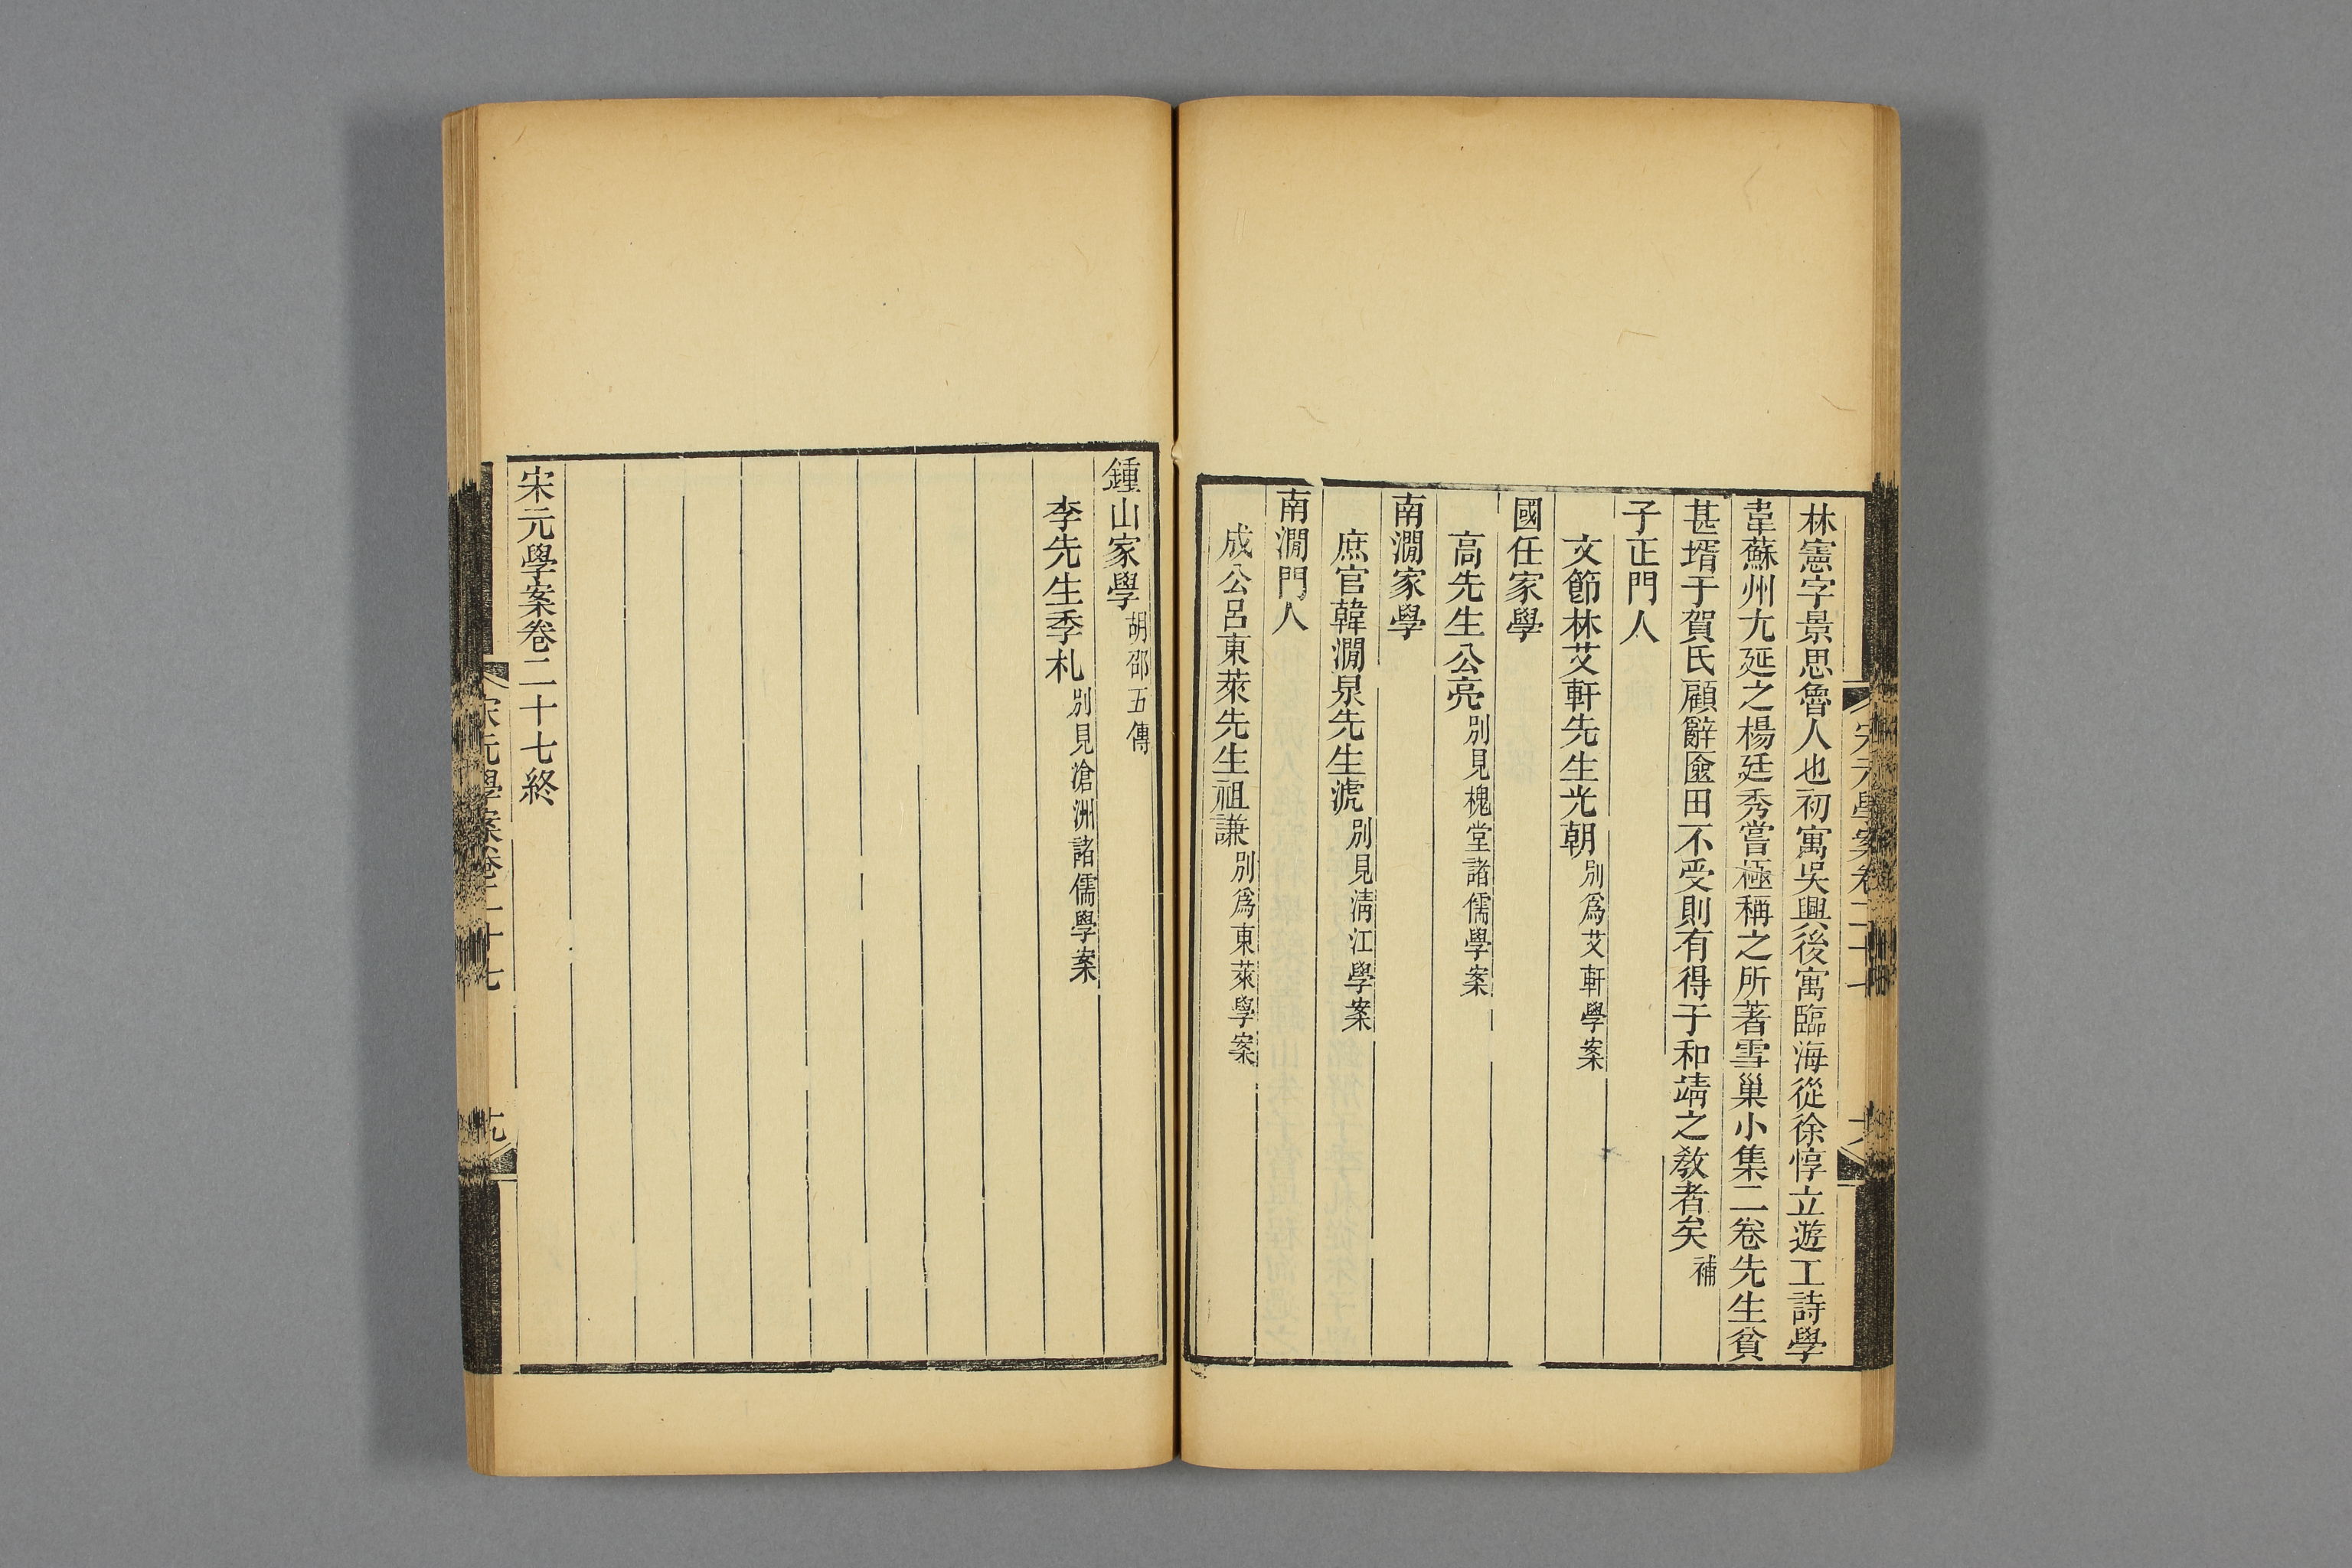 林憲字景思魯人也初寓吳興後寓臨海從徐惇立遊工詩學
韋蘇州尢延之楊廷秀嘗極稱之所著雪巢小集二卷先生貧
甚壻于賀氏顧辭匳田不受則有得于和靖之敎者矣補
子正門人
文節林艾軒先生光朝別爲艾軒學案
國任家學
高先生公亮別見槐堂諸儒學案
南澗家學
庶官韓澗泉先生淲別見淸江學案
南澗門人
成公呂東萊先生祖謙別爲東萊學案
鍾山家學胡邵五傳
李先生季札別見滄洲諸儒學案
宋元學案卷二十七終
宋元學案卷二十七